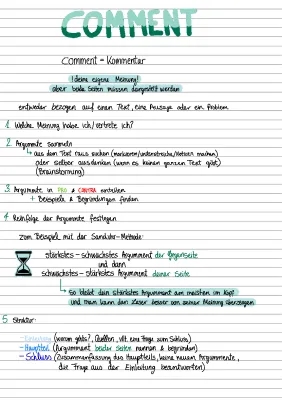 COMMENT
Comment = Kommentar
! deine eigene Meinung!
aber beide Seiten müssen dargestellt werden
entweder bezogen auf einen Text, eine Aussage oder ein Problem
1. Welche Meinung habe ich/vertrete ich?
2. Argumente sammeln
aus dem Text raus suchen (markieren/unterstreichen/Notizen machen)
oder selber ausdenken (wenn es keinen ganzen Text gibt)
(Brainstorming)
3. Argumente in PRO & CONTRA einteilen
+ Beispiele & Begründungen finden
4. Reihfolge der Argumente festlegen
zum Beispiel mit der Sanduhr-Methode:
stärkstes - schwächstes Argument der Gegenseite
und dann
schwächstes - stärkstes Argument deiner Seite
So bleibt dein stärkstes Argument am meisten im Kopf
und man kann den Leser besser von seiner Meinung überzeugen
5. Struktur:
- Einleitung (worum gehts?, Quellen, vllt. eine Frage zum Schluss)
- Hauptteil (Argument beider Seiten nennen & begründen)
- Schluss (Zusammenfassung des Hauptteils, keine neuen Argumente,
die Frage aus der Einleitung beantworten)